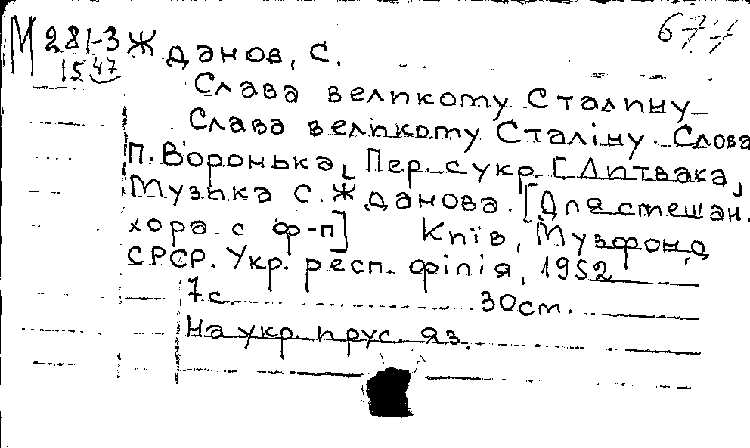 М 281-3 Жданов, С. 677
1547
Слава великому Сталину
Слава великому Сталіну. Слова
П. Воронька, Пер. с укр. [Литвака,
Музыка С. Жданова. [Для смешан.
хора с ф-п] Київ, Музфонд
СРСР. Укр. респ. філія, 1952
7 с. 30 см.
На укр. и рус. яз.